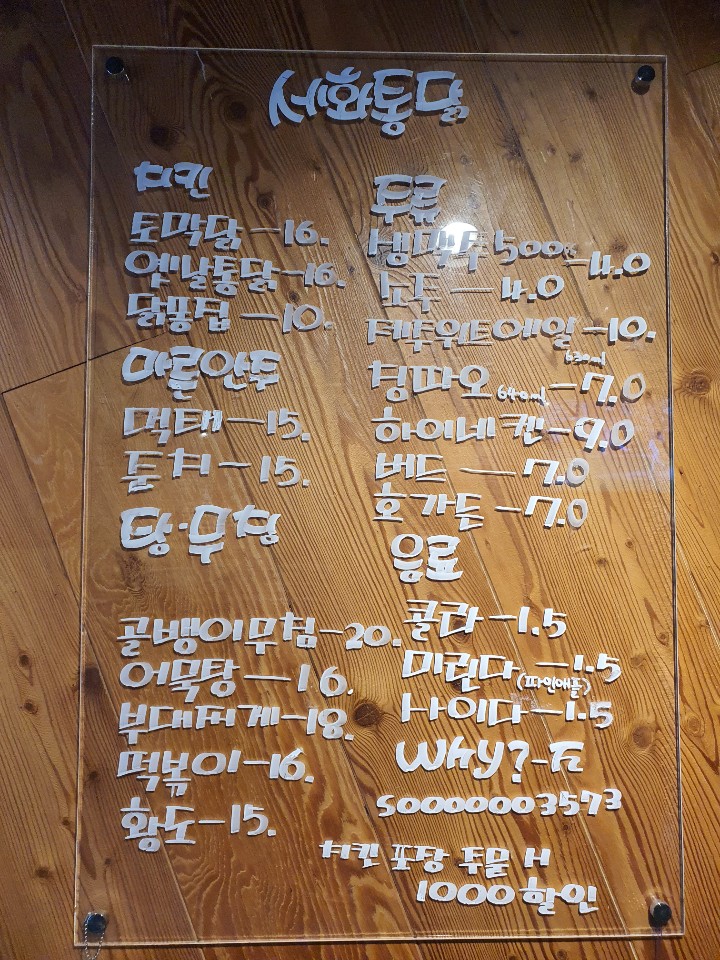 세화통닭
치킨
토막닭-16.
옛날통닭-16.
닭똥집-10.
마른안주
먹태-15.
쥐치-15.
탕·무침
골뱅이무침-20.
어묵탕-16.
부대찌게-18.
떡볶이-16.
황도-15.
주류
생맥주500cc-4.0
소주-4.0
제주위트에일-10.
칭따오640ml-7.0
하이네켄-9.0
버드-7.0
호가든-7.0
음료
콜라-1.5
미린다(파인애플)-1.5
사이다-1.5
치킨 포장 주문시
1000할인